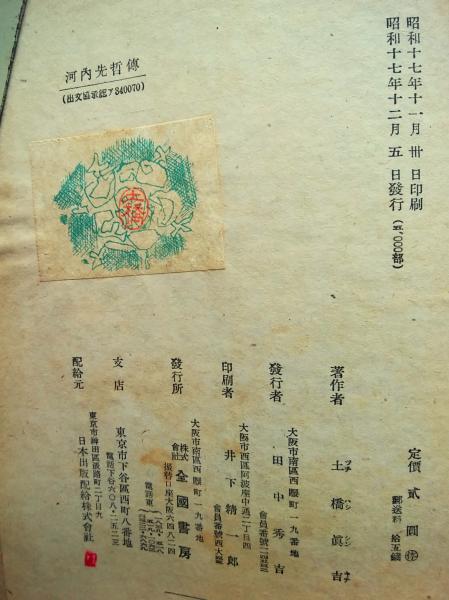 昭和十七年十一月 卅 日印刷
昭和十七年十二月 五 日發行（五、〇〇〇部）
河內先哲傳
（出文協承認ア340070）
土橋
定價 貳 圓
郵送料 拾五錢
著作者
土橋眞吉
ツチ ハシ シン キチ
發行者
大阪市南區西賑町一九番地
田中秀吉
印刷者
大阪市西區阿波座中通二丁目四
井下精一郎
發行所
大阪市南區西賑町一九番地
株式會社 全國書房
振替口座大阪六四八二四
支店
東京市下谷區西町八番地
電話下谷
配給元
東京市神田區淡路町二丁目九
日本出版配給株式會社